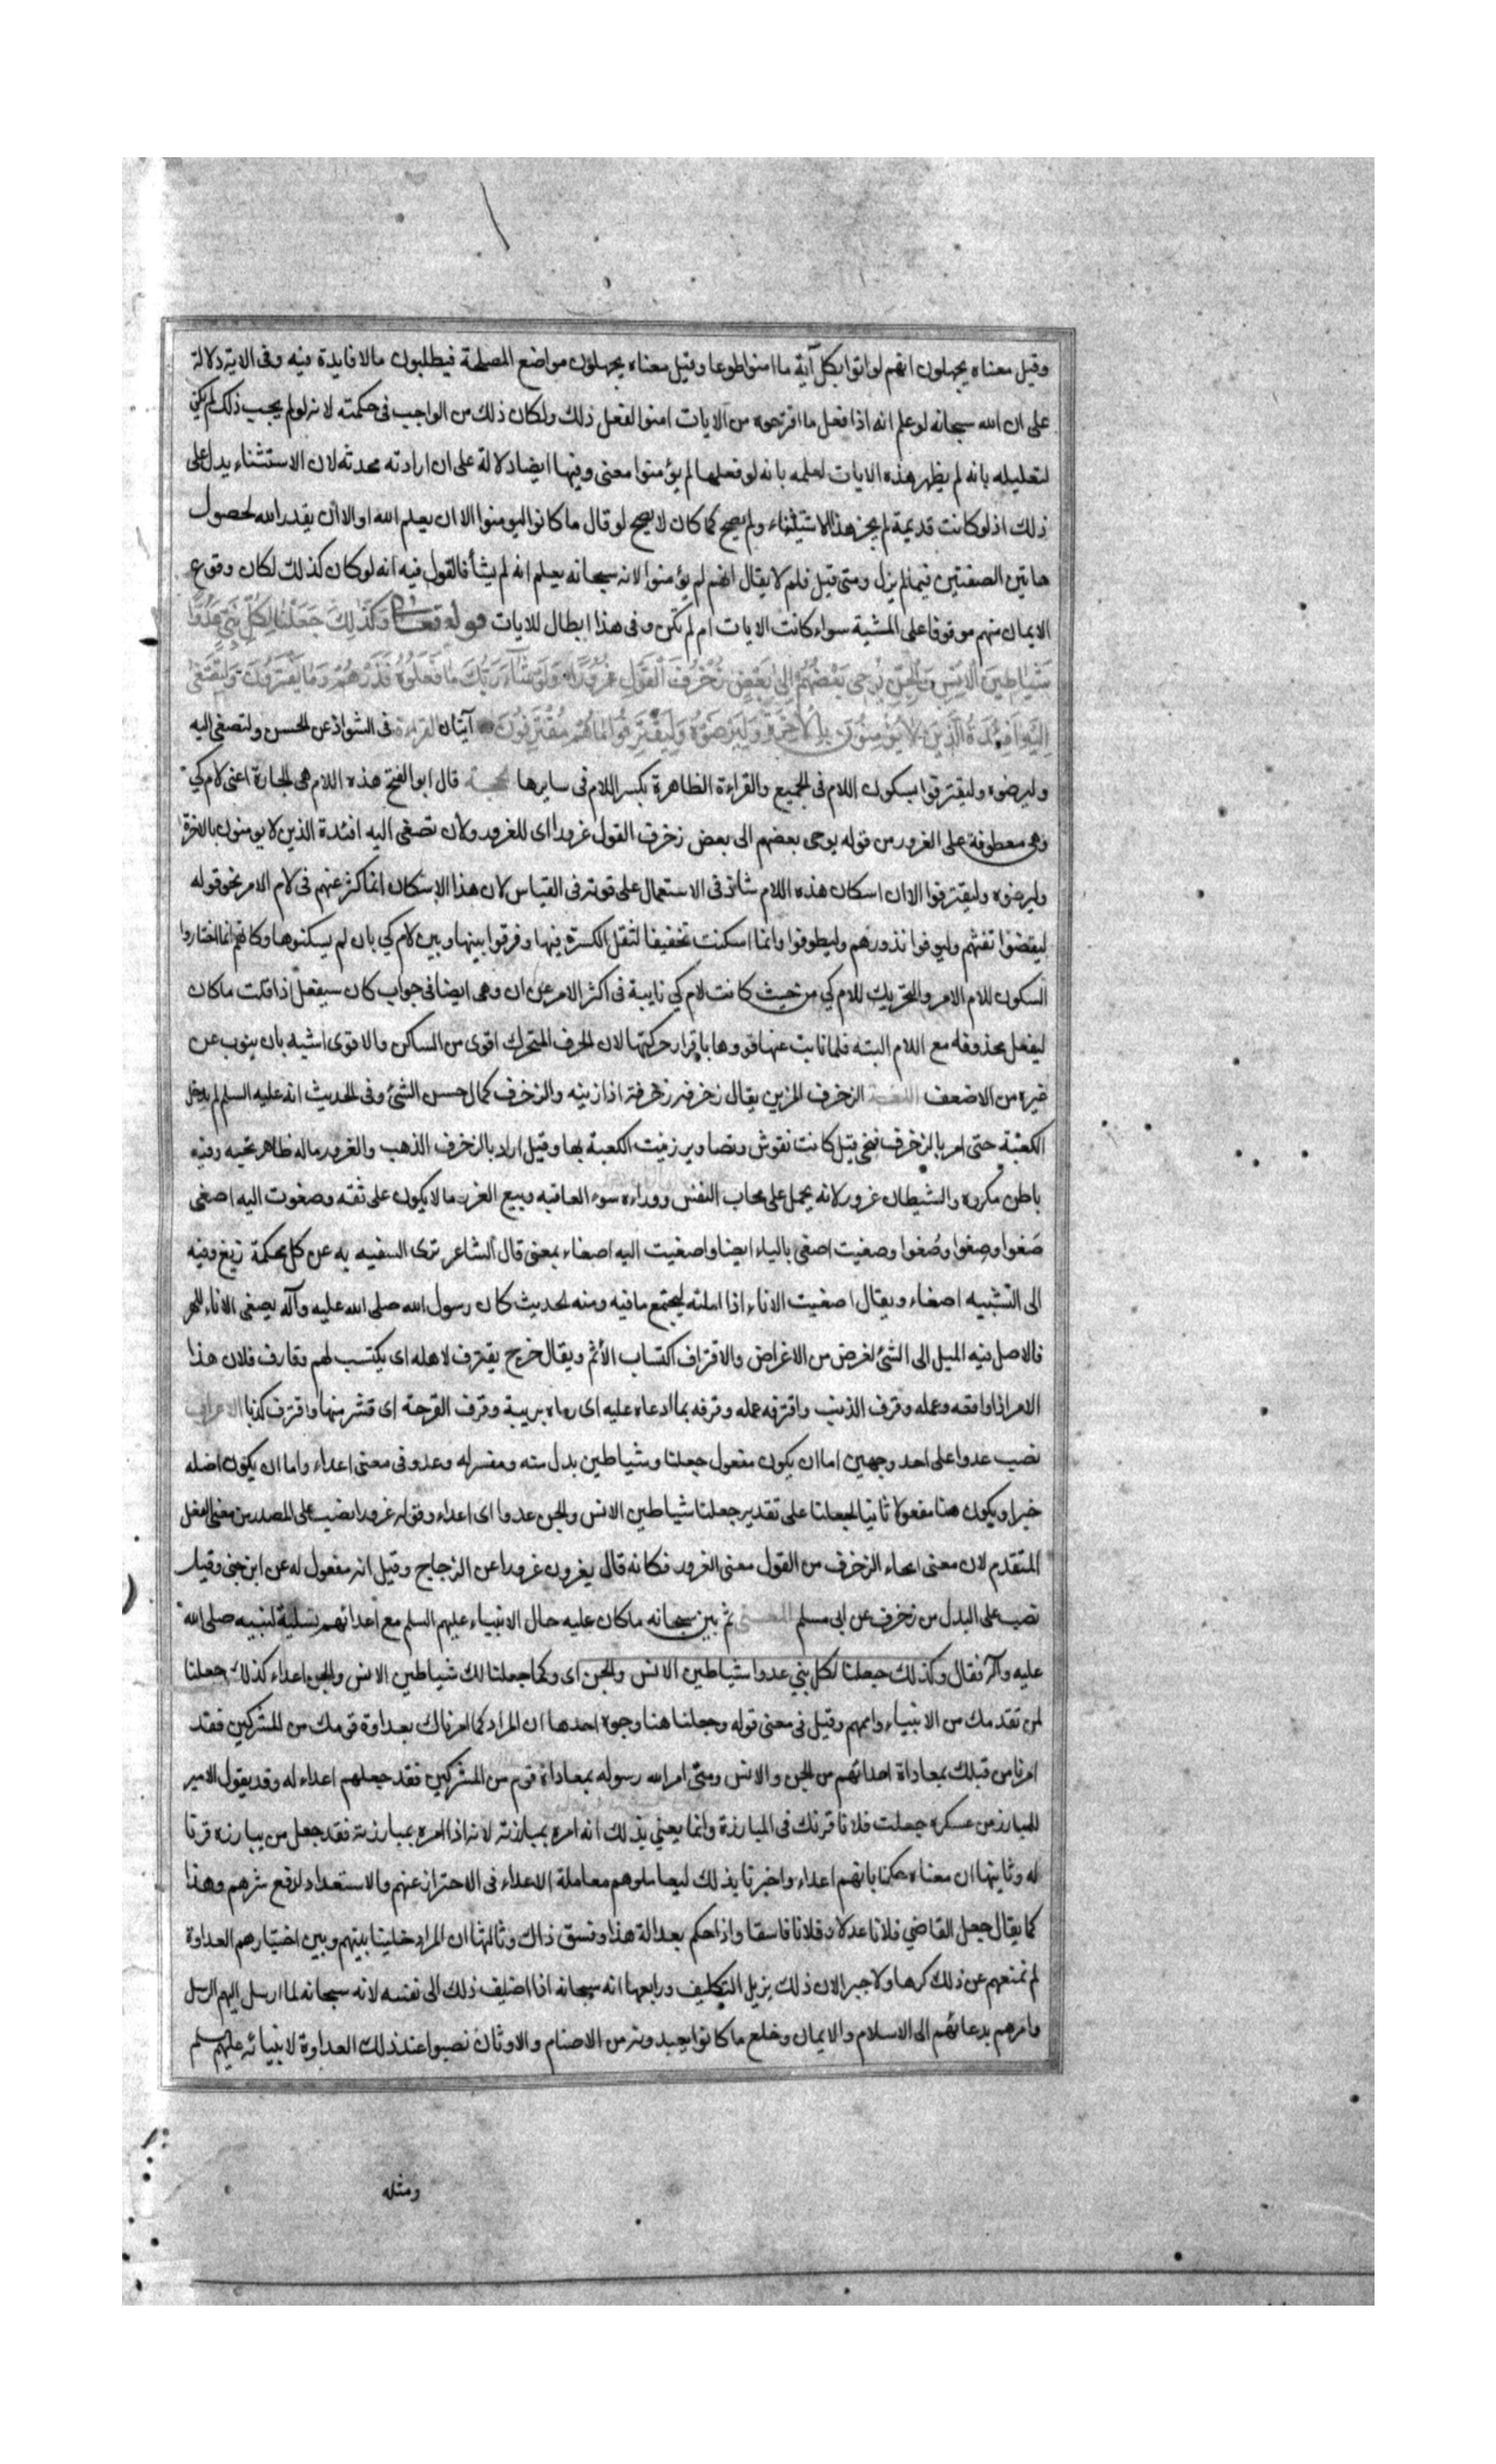 وقيل معناه يجهلون انهم لو اتوا بكل آية ما امنوا طوعا وقيل معناه يجهلون مواضع المصلحة فيطلبون مالا فايدة فيه وفى الاية دلالة
على ان الله سبحانه لو علم انه اذا فعل ما اقترحوه من الايات امنوا لفعل ذلك ولكان ذلك من الواجب فى حكمته لانه لو لم يجب ذلك لم يكن
لتعليله بانه لم يظهر هذه الايات لعلمه بانه لو فعلها لم يؤمنوا معنى وفيها ايضا دلالة على ان ارادته محدثه لان الاستثناء يدل على
ذلك اذ لو كانت قديمة لم يجز هذا الاستثناء ولم يصح كما كان لا يصح لو قال ما كانوا ليومنوا الا ان يعلم الله او الا ان يقدر الله لحصول
هاتين الصفتين فيما لم يزل ومتى قيل فلم لا يقال انهم لم يؤمنوا لانه سبحانه يعلم انه لم يشأ فالقول فيه انه لو كان كذلك لكان وقوع
الايمان منهم موقوفا على المشية سواء كانت الايات ام لم تكن وفى هذا ابطال للايات قوله تعالى وَكَذٰلِكَ جَعَلْنَا لِكُلِّ نَبِيٍّ عَدُوًّا
شَيَاطِينَ الْاِنْسِ وَالْجِنِّ يُوحِى بَعْضُهُمْ اِلٰى بَعْضٍ زُخْرُفَ الْقَوْلِ غُرُورًا وَلَوْ شَاءَ رَبُّكَ مَا فَعَلُوهُ فَذَرْهُمْ وَمَا يَفْتَرُونَ وَلِتَصْغٰى
اِلَيْهِ اَفْئِدَةُ الَّذِينَ لَا يُؤْمِنُونَ بِالْاٰخِرَةِ وَلِيَرْضَوْهُ وَلِيَقْتَرِفُوا مَا هُمْ مُقْتَرِفُونَ آيتان القراءة فى الشواذ عن الحسن ولتصغى اليه
وليرضوه وليقترفوا بسكون اللام فى الجميع والقراءة الظاهرة بكسر اللام فى سايرها الحجة قال ابو الفتح هذه اللام هى الجارة اعنى لام كي
وهى معطوفة على الغرور من قوله يوحى بعضهم الى بعض زخرف القول غرورا اى للغرور ولان تصغى اليه افئدة الذين لا يومنون بالاخرة
وليرضوه وليقترفوا الا ان اسكان هذه اللام شاذ فى الاستعمال على قوته فى القياس لان هذا الاسكان انما كثر عنهم فى لام الامر نحو قوله
ليقضوا تفثهم وليوفوا نذورهم وليطوفوا وانما اسكنت تخفيفا لثقل الكسرة فيها وفرقوا بينها وبين لام كي بان لم يسكنوها وكانهم انما اختاروا
السكون للام الامر والتحريك للام كي من حيث كانت لام كي نايبة فى اكثر الامر عن ان وهى ايضا فى جواب كان سيفعل اذا قلت ما كان
ليفعل محذوفه مع اللام البته فلما نابت عنها قووها باقرار حركتها لان الحرف المتحرك اقوى من الساكن والاقوى اشبه بان ينوب عن
غيره من الاضعف اللغة الزخرف المزين يقال زخرفه زخرفة اذا زينه والزخرف كمال حسن الشئ وفى الحديث انه عليه السلم لم يدخل
الكعبة حتى امر بالزخرف فنحى قيل كانت نقوش وتصاوير زينت الكعبة بها وقيل اراد بالزخرف الذهب والغرور ماله ظاهر تحبه وفيه
باطن مكروه والشيطان غرور لانه يحمل على محاب النفس ووراءه سوء العاقبه وبيع الغرر ما لا يكون على ثقه وصغوت اليه اصغى
صَغوا وصِغوا وصُغوا وصغيت اصغى بالياء ايضا واصغيت اليه اصغاء بمعنى قال الشاعر ترى السفيه به عن كل محكمة زيغ وفيه
الى التشبيه اصغاء ويقال اصغيت الاناء اذا املته ليجتمع ما فيه ومنه الحديث كان رسول الله صلى الله عليه وآله يصغى الاناء للهر
فالاصل فيه الميل الى الشئ لغرض من الاغراض والاقتراف اكتساب الأثم ويقال خرج يقترف لاهله اى يكتسب لهم وقارف فلان هذا
الامر اذا واقعه وعمله وقرف الذنب واقترفه عمله وقرفه بما ادعاه عليه اى رماه بريبة وقرف القرحة اى قشر منها واقترف كذبا الاعراب
نصب عدوا على احد وجهين اما ان يكون مفعول جعلنا وشياطين بدل منه ومفسر له وعدو فى معنى اعداء واما ان يكون اصله
خبرا ويكون هنا مفعولا ثانيا لجعلنا على تقدير جعلنا شياطين الانس والجن عدوا اى اعداء وقوله غرورا نصب على المصدر من معنى الفعل
المتقدم لان معنى ايحاء الزخرف من القول معنى الغرور فكانه قال يغرون غرورا عن الزجاج وقيل انه مفعول له عن ابن جنى وقيل
نصب على البدل من زخرف عن ابى مسلم المعنى ثم بين سبحانه ما كان عليه حال الانبياء عليهم السلم مع اعدائهم تسلية لنبيه صلى الله
عليه وآله فقال وكذلك جعلنا لكل نبي عدوا شياطين الانس والجن اى وكما جعلنا لك شياطين الانس والجن اعداء كذلك جعلنا
لمن تقدمك من الانبياء واممهم وقيل فى معنى قوله وجعلنا هنا وجوه احدها ان المراد كما امرناك بعداوة قومك من المشركين فقد
امرنا من قبلك بمعاداة اعدائهم من الجن والانس ومتى امر الله رسوله بمعاداة قوم من المشركين فقد جعلهم اعداء له وقد يقول الامير
للمبارز من عسكره جعلت فلانا قرنك فى المبارزة وانما يعني بذلك انه امره بمبارزته لانه اذا امره بمبارزته فقد جعل من يبارزه قرنا
له وثانيها ان معناه حكمنا بانهم اعداء واخبرنا بذلك ليعاملوهم معاملة الاعداء فى الاحتراز عنهم والاستعداد لدفع شرهم وهذا
كما يقال جعل القاضي فلانا عدلا وفلانا فاسقا واذا حكم بعدالة هذا وفسق ذاك وثالثها ان المراد خلينا بينهم وبين اختيارهم العداوة
لم نمنعهم عن ذلك كرها ولا جبرا لان ذلك يزيل التكليف ورابعها انه سبحانه اذا اضيف ذلك الى نفسه لانه سبحانه لما ارسل اليهم الرسل
وامرهم بدعائهم الى الاسلام والايمان وخلع ما كانوا يعبدونه من الاصنام والاوثان نصبوا عند ذلك العداوة لانبيائه عليهم السلم
ومثله